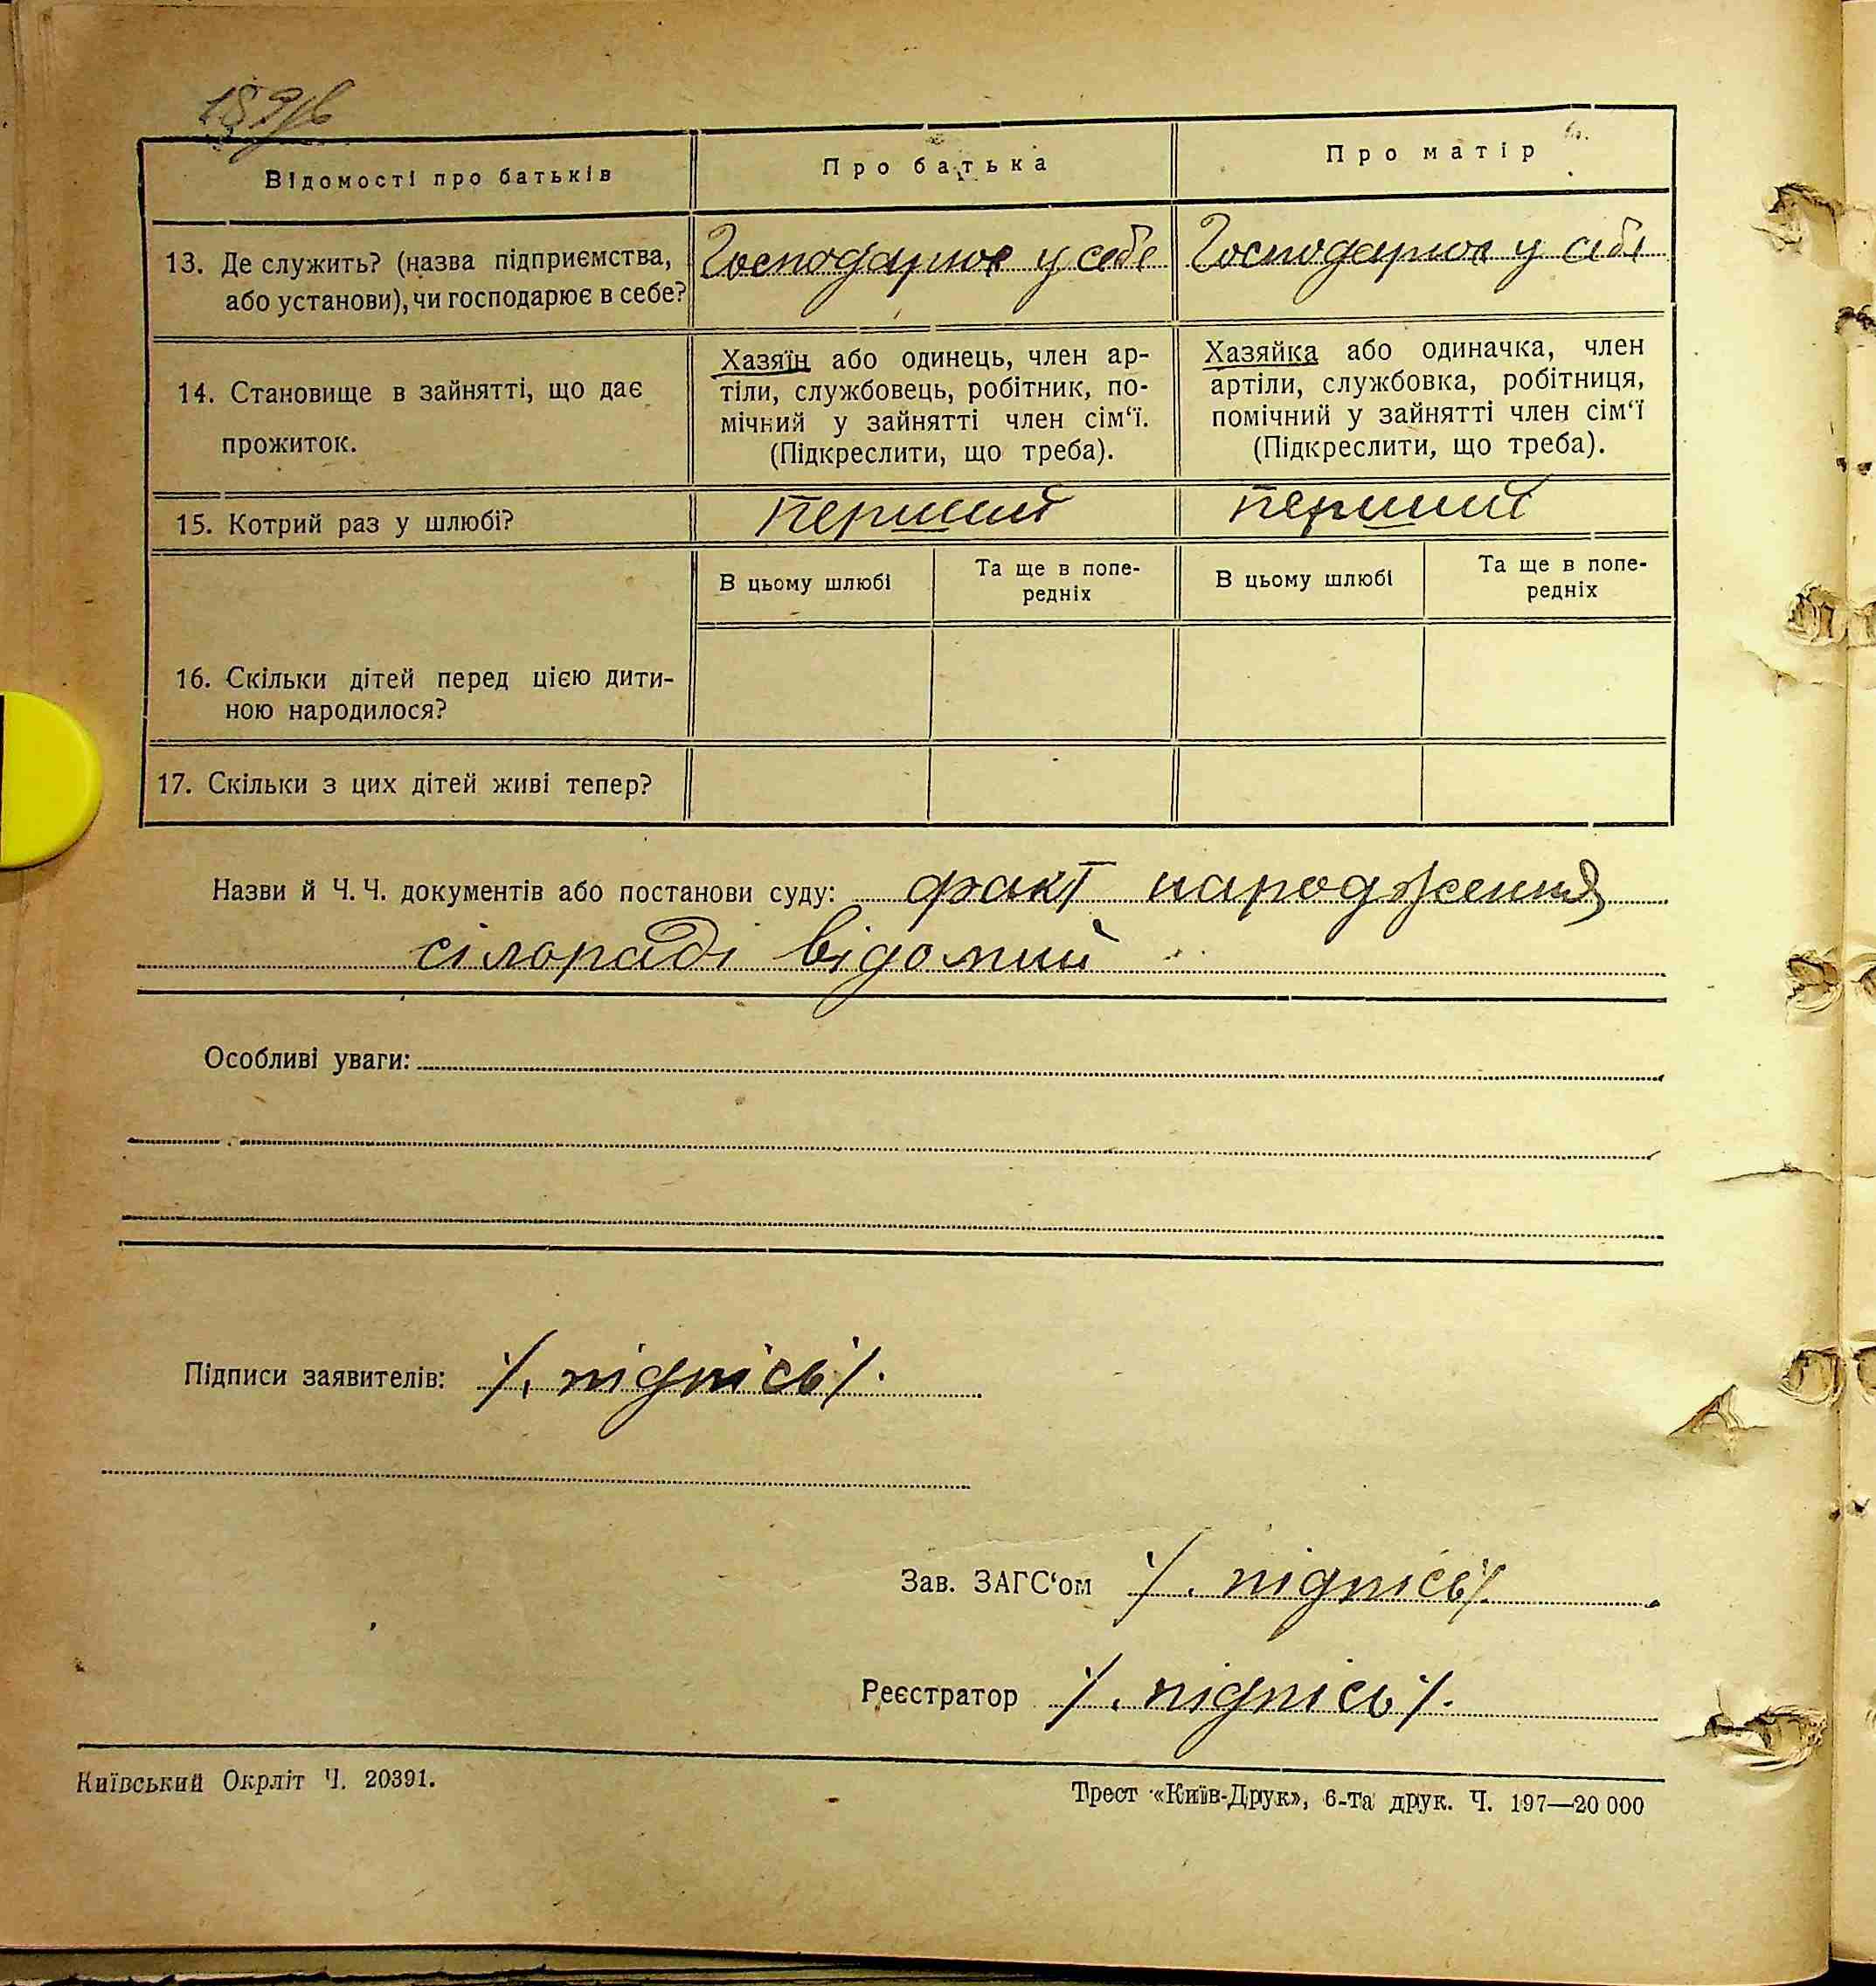 Відомості про батьків
Про батька
Про матір
13. Де служить? (назва підприємства,
або установи), чи господарює в себе?
Господарює у себе
Господарює у себе
14. Становище в зайнятті, що дає
прожиток.
Хазяїн або одинець, член ар-
тіли, службовець, робітник, по-
мічний у зайнятті член сім‘ї.
(Підкреслити, що треба).
Хазяйка або одиначка, член
артіли, службовка, робітниця,
помічний у зайнятті член сім‘ї
(Підкреслити, що треба).
15. Котрий раз у шлюбі?
перший
перший
В цьому шлюбі
Та ще в попе-
редніх
В цьому шлюбі
Та ще в попе-
редніх
16. Скільки дітей перед цією дити-
ною народилося?
17. Скільки з цих дітей живі тепер?
Назви й Ч. Ч. документів або постанови суду: факт народження
сілораді відомий
Особливі уваги:
Підписи заявителів: /. підпісь/.
Зав. ЗАГС‘ом /. підпісь/.
Реєстратор /. підпісь/.
Київський Окрліт Ч. 20391.
Трест «Київ-Друк», 6-та друк. Ч. 197—20 000